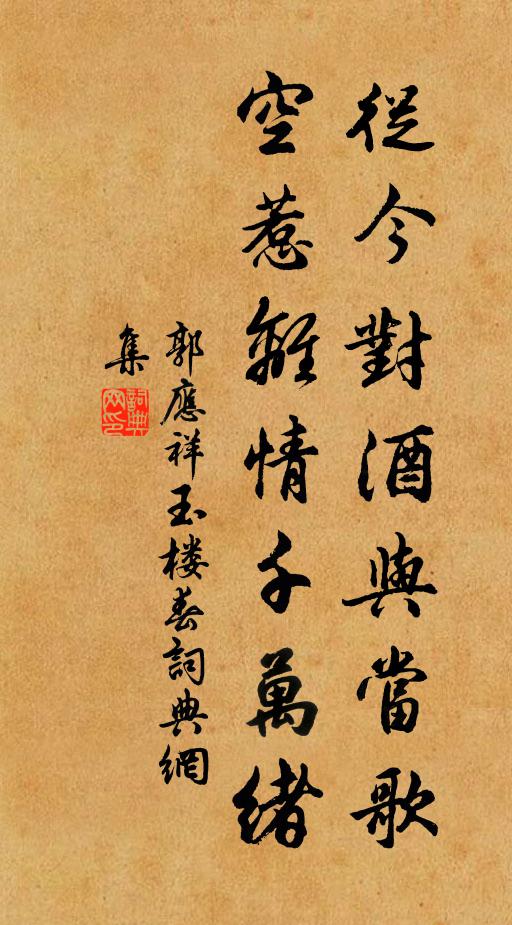 從今對酒與當歌
空惹離情千萬緒
郭應祥玉楼春詞典網
集
詞典网印